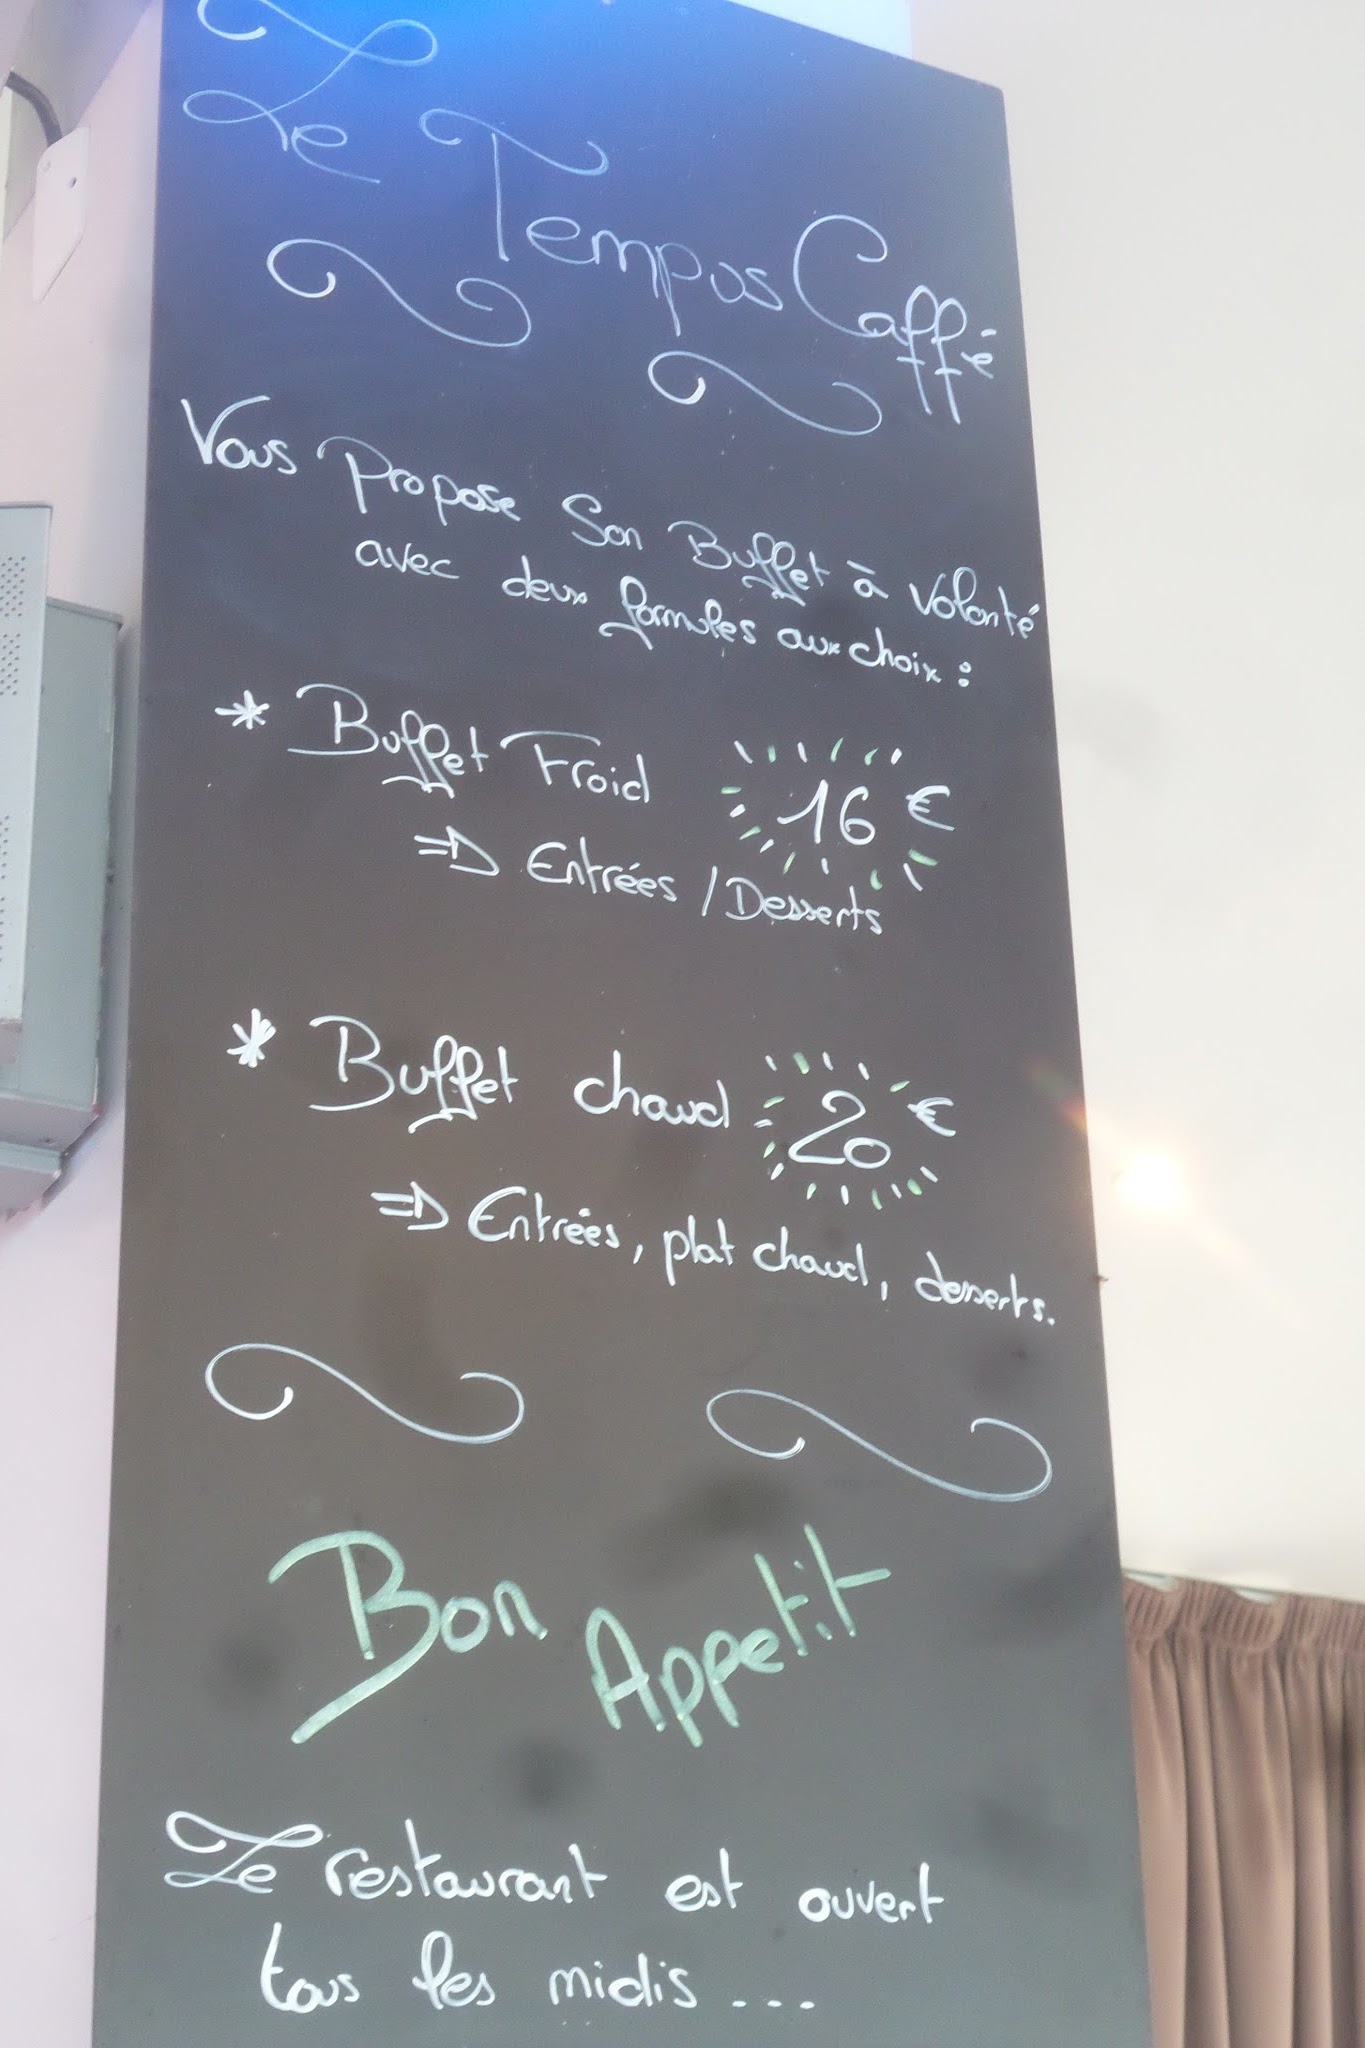 Le Tempus Caffé
Vous Propose Son Buffet à Volonté
avec deux formules aux choix :
* Buffet Froid 16 €
=> Entrées / Desserts
* Buffet chaud 20 €
=> Entrées, plat chaud, desserts.
Bon Appetit
Le restaurant est ouvert
tous les midis ...